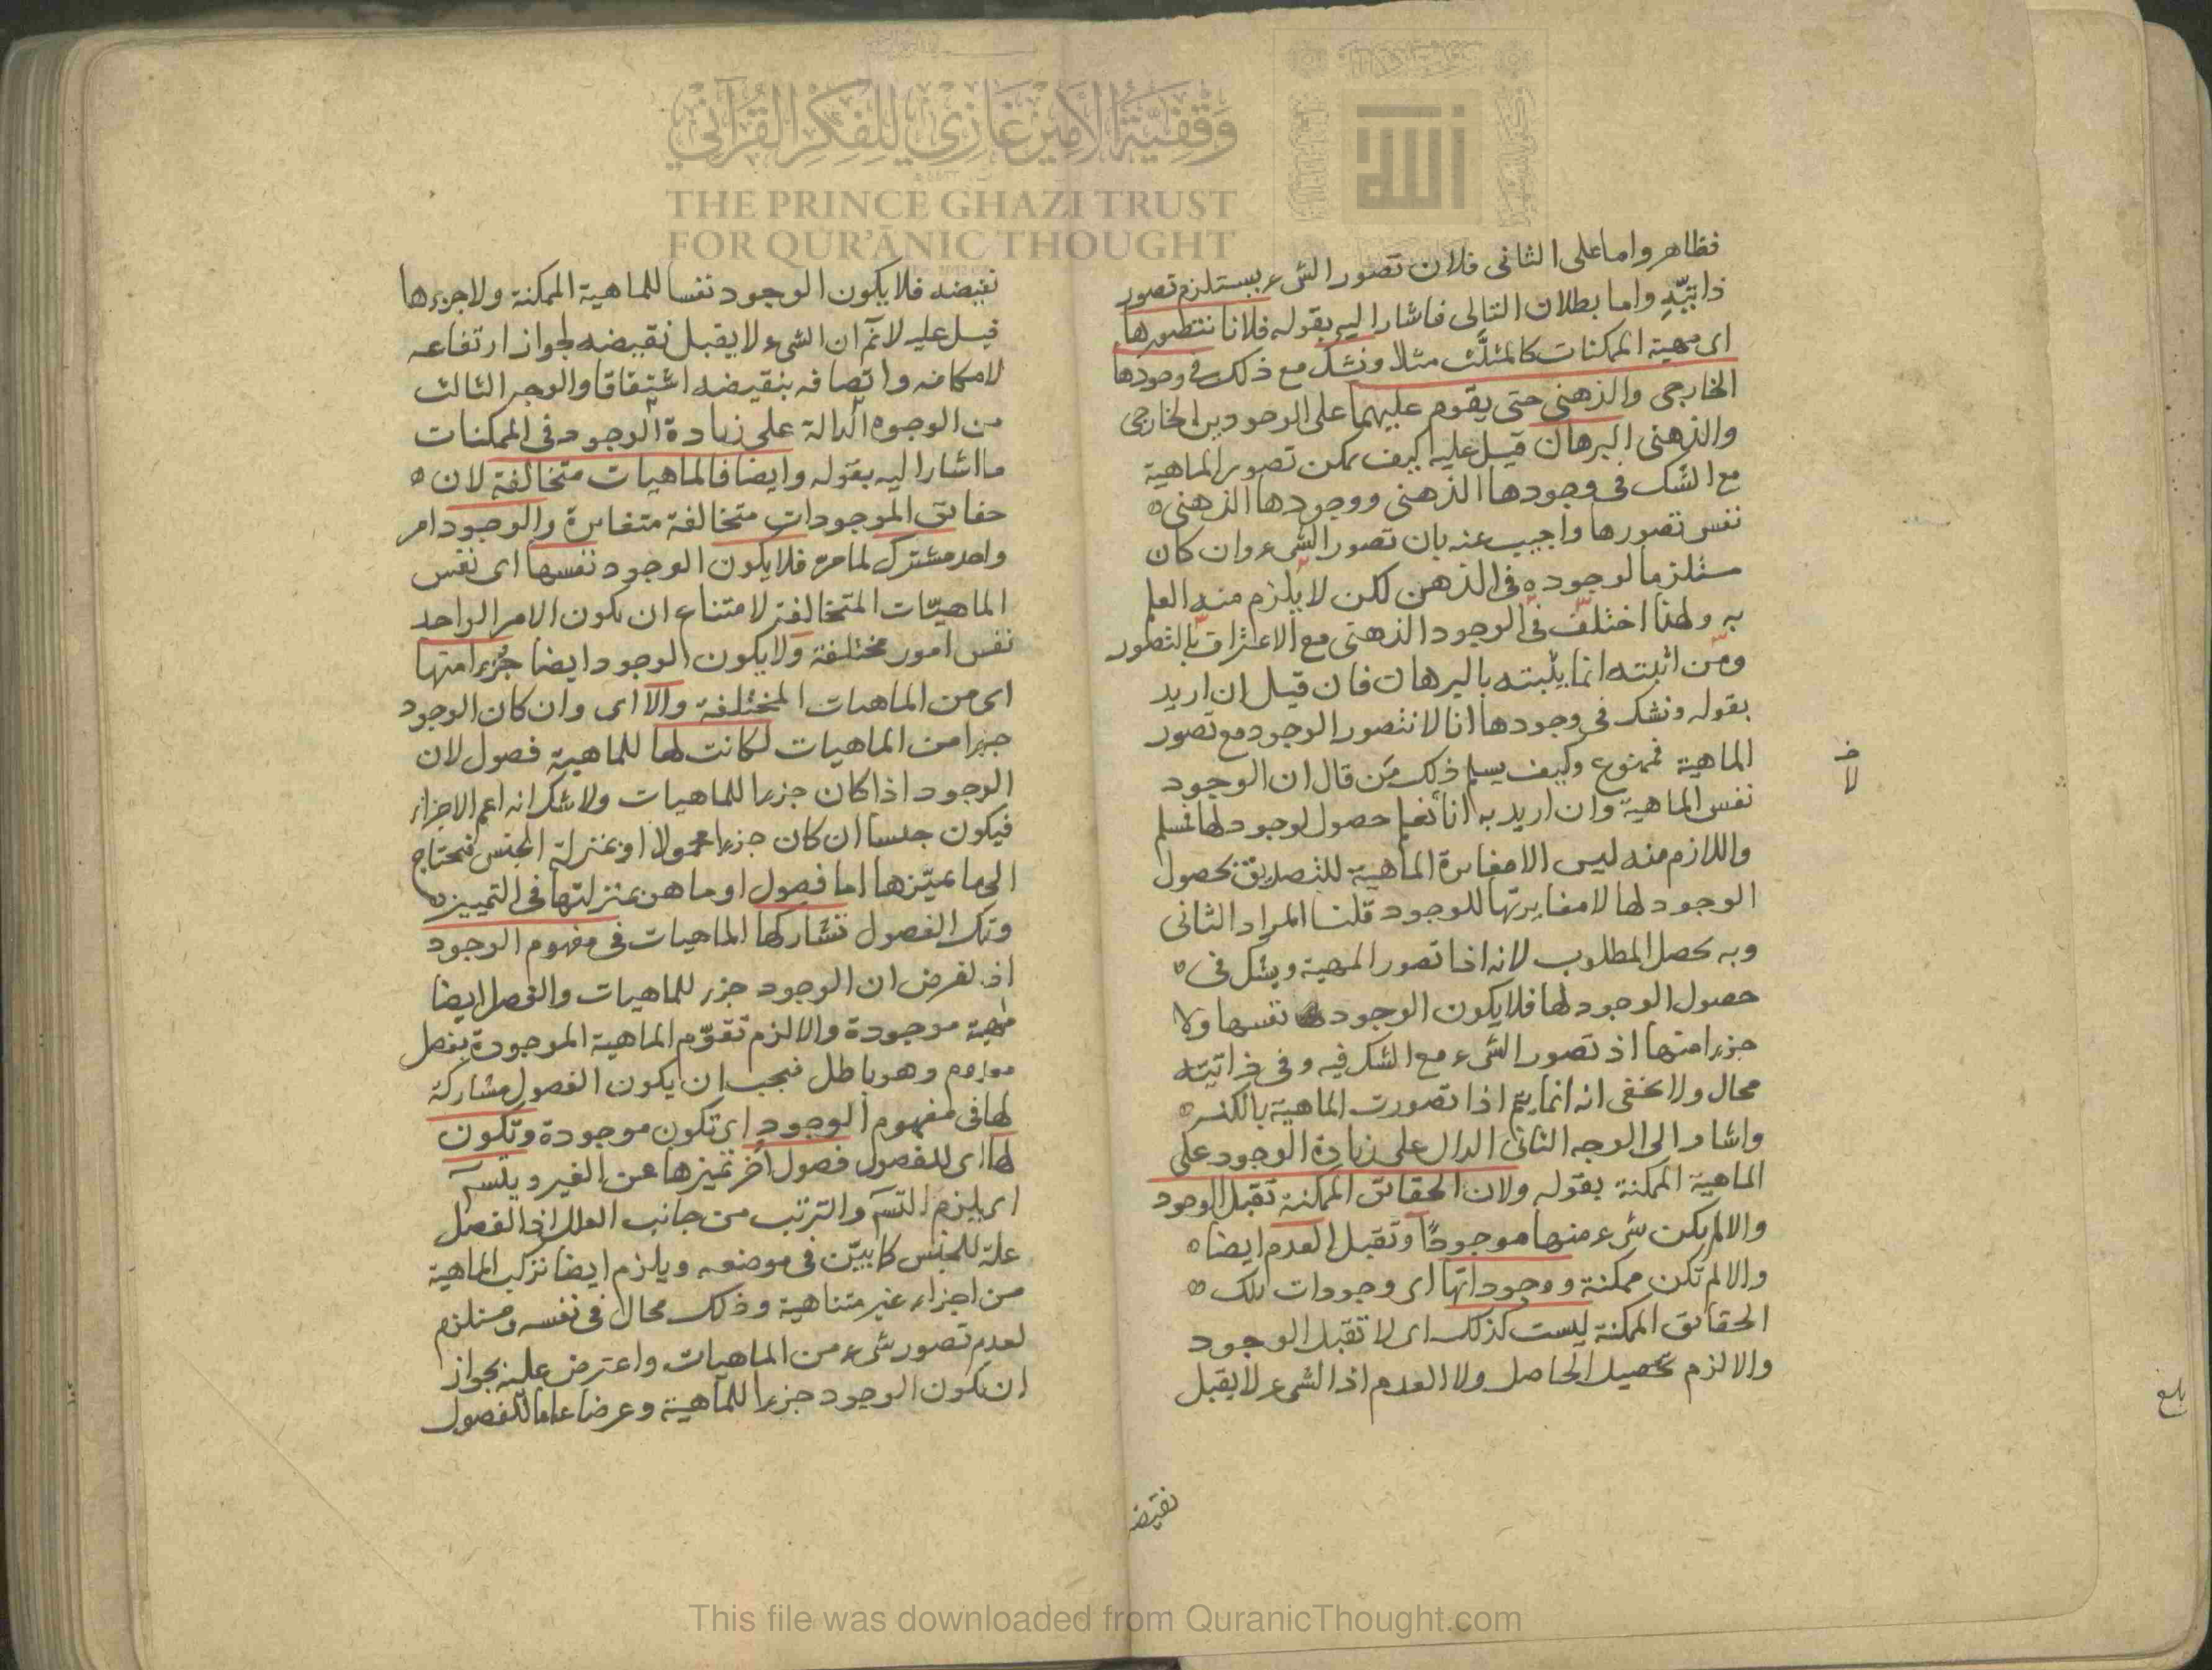 فظاهر واما على الثاني فلان تصور الشيء يستلزم تصور
ذاتيّه واما بطلان التالي فاشار اليه بقوله فلانا نتصورها
اى مهية الممكنات كالمثلّث مثلا ونشك مع ذلك في وجودها
الخارجي والذهني حتى يقوم عليهما على الوجودين الخارجي
والذهني البرهان قيل عليه كيف يمكن تصور الماهية
مع الشك في وجودها الذهني ووجودها الذهني
نفس تصورها واجيب عنه بان تصور الشيء وان كان
مستلزما لوجوده في الذهن لكن لا يلزم منه العلم
به ولهذا اختلف في الوجود الذهني مع الاعتراف بالتصور
ومن اثبته انما يثبته بالبرهان فان قيل ان اريد
بقوله ونشك في وجودها انا لا نتصور الوجود مع تصور
الماهية فممنوع وكيف يسلم ذلك من قال ان الوجود
نفس الماهية وان اريد به انا نعلم حصول لوجود لها فمسلم
خـ
لا
واللازم منه ليس الا مغايرة الماهية للتصديق بحصول
الوجود لها لا مغايرتها للوجود قلنا المراد الثاني
وبه يحصل المطلوب لانه اذا تصور المهية ويشك في
حصول الوجود لها فلا يكون الوجود نفسها ولا
جزءا منها اذ تصور الشيء مع الشك فيه وفي ذاتيته
محال ولا يخفى انه انما يتم اذا تصورت الماهية بالكنه
واشار الى الوجه الثاني الدال على زيادة الوجود على
الماهية الممكنة بقوله ولان الحقائق الممكنة تقبل الوجود
والا لم يكن شيء منها موجودًا وتقبل العدم ايضا
والا لم تكن ممكنة ووجوداتها اى وجودات تلك
الحقائق الممكنة ليست كذلك اى لا تقبل الوجود
والا لزم تحصيل الحاصل ولا العدم اذ الشيء لا يقبل
بلغ
نقيضه
نقيضه فلا يكون الوجود نفسا للماهية الممكنة ولا جزءها
قيل عليه لانم ان الشيء لا يقبل نقيضه لجواز ارتفاعه
لامكانه واتصافه بنقيضه اشتقاقا والوجه الثالث
من الوجوه الدالة على زيادة الوجود في الممكنات
ما اشار اليه بقوله وايضا فالماهيات متخالفة لان
حقائق الموجودات متخالفة متغايرة والوجود امر
واحد مشترك لما مر فلا يكون الوجود نفسها اى نفس
الماهيّات المتخالفة لامتناع ان يكون الامر الواحد
نفس امور مختلفة ولا يكون الوجود ايضا جزءا منها
اى من الماهيات المختلفة والا اى وان كان الوجود
جزءا من الماهيات لكانت لها للماهية فصول لان
الوجود اذا كان جزءا للماهيات ولا شك انه اعم الاجزاء
فيكون جنسا ان كان جزءا محمولا او بمنزلة الجنس فتحتاج
الى ما يميّزها اما فصول او ما هن بمنزلتها في التمييز
وتلك الفصول تشاركها الماهيات في مفهوم الوجود
اذ لفرض ان الوجود جزء للماهيات والفصل ايضا
مهية موجودة والا لزم تقوّم الماهية الموجودة بفصل
معدوم وهو باطل فيجب ان يكون الفصول مشاركة
لها في مفهوم الوجود اى تكون موجودة وتكون
لها اى للفصول فصول أخر تميزها عن الغير ويتسـ
اى يلزم التسـ والترتب من جانب العلل اذ الفصل
علة للجنس كما بيّن في موضعه ويلزم ايضا تركب الماهية
من اجزاء غير متناهية وذلك محال في نفسه ومستلزم
لعدم تصور شيء من الماهيات واعترض عليه بجواز
ان يكون الوجود جزءا للماهية وعرضا عاما للفصول
وقفية الأمير غازي للفكر القرآني
THE PRINCE GHAZI TRUST
FOR QUR'ĀNIC THOUGHT
الله
This file was downloaded from QuranicThought.com